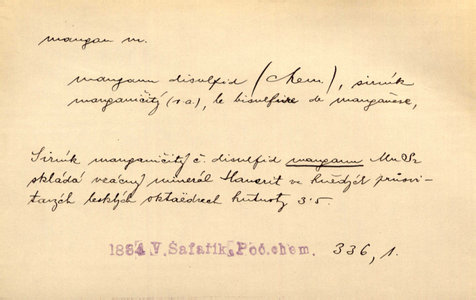 mangan m.
manganu disulfid (chem.), sirník
manganičitý (v. a.), le bisulfure de manganèse,
Sirník manganičitý č. disulfid manganu MnS₂
skládá vzácný minerál Hauerit ve hnědých průsvi-
tavých lesklých oktaëdrech hutnoty 3·5.
1884 V. Šafařík, Poč. chem. 336, 1.